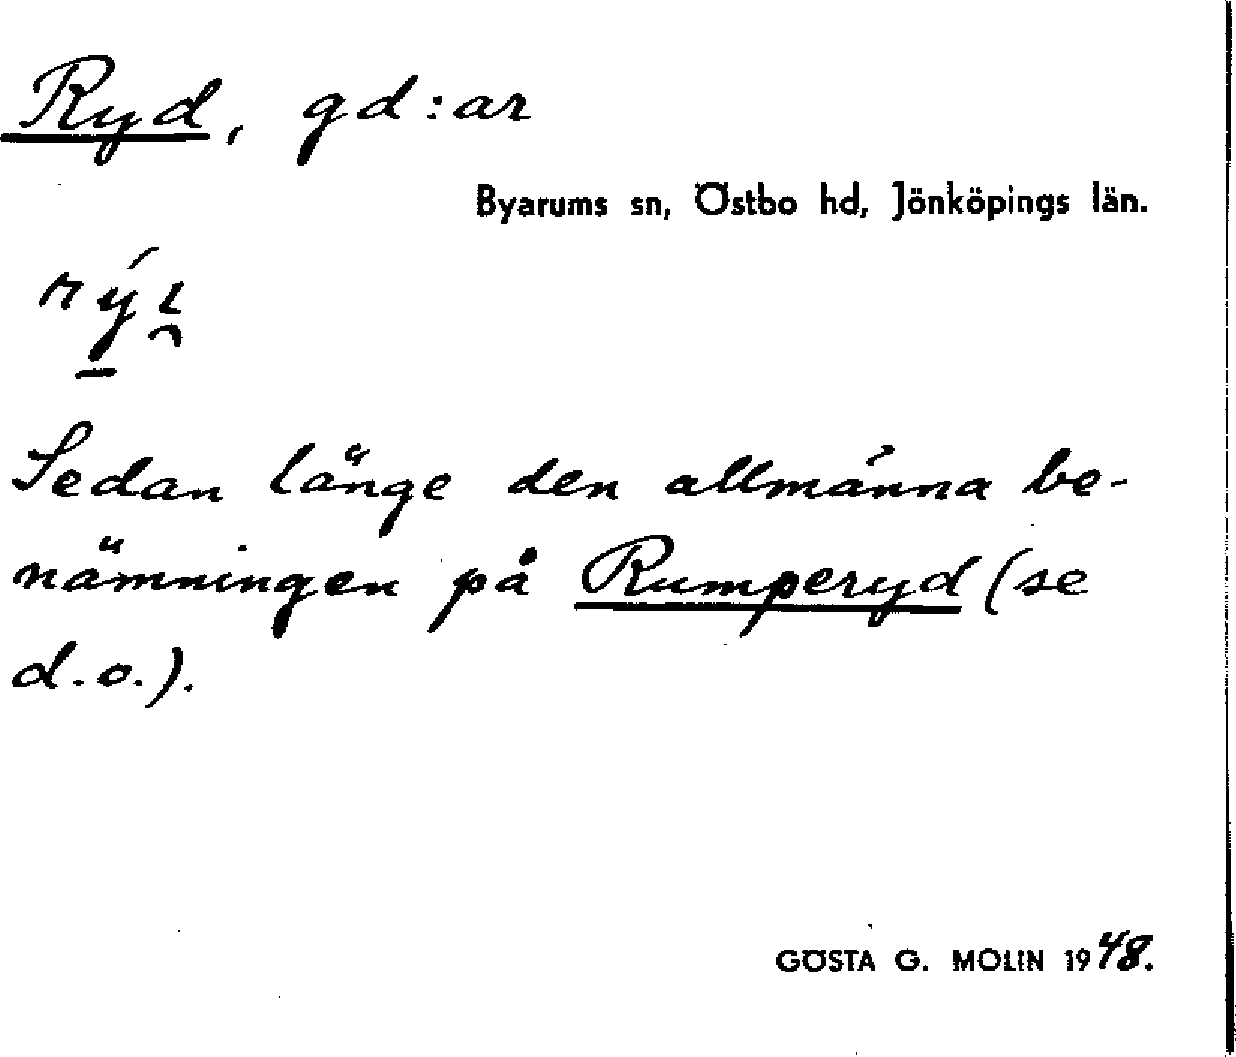 Ryd, gd:ar
Byarums sn, Östbo hd, Jönköpings län.
Sedan länge den allmänna be-
nämningen på Rumperyd (se
d.o.).
GÖSTA G. MOLIN 1948.